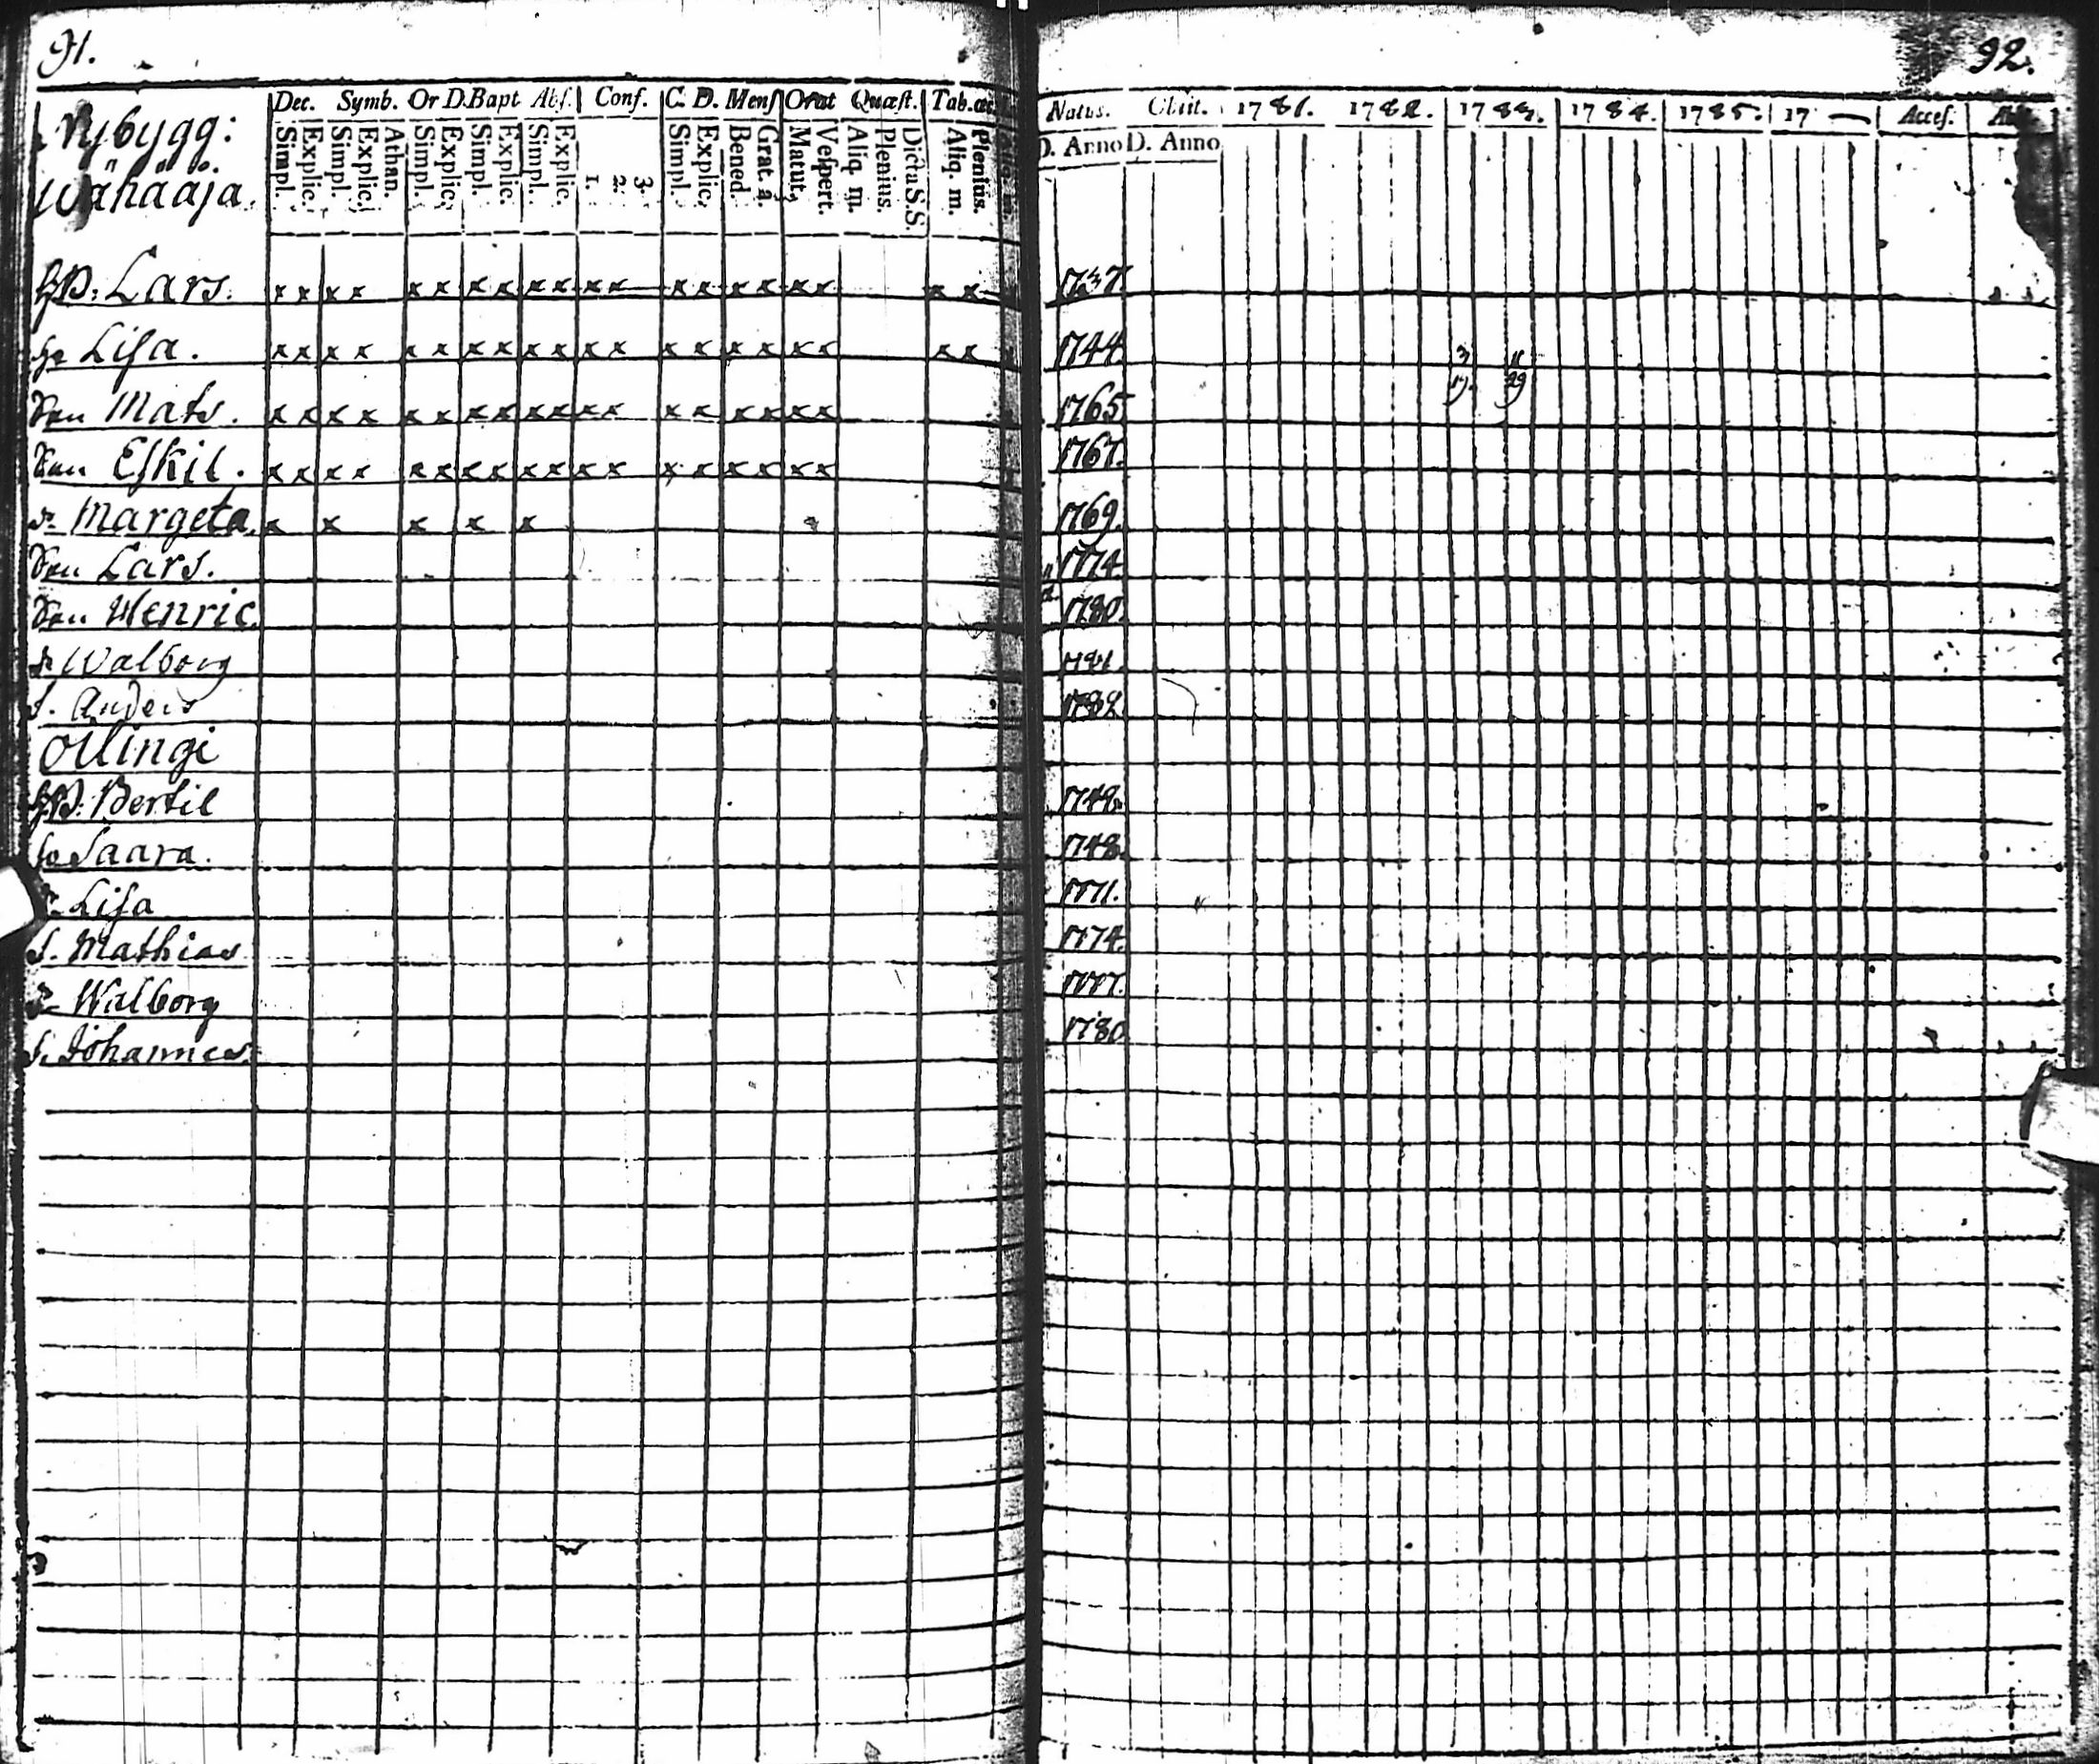 91.
Dec. Symb. Or D. Bapt Abs. Conf. C. D. Mens Orat Quæst. Tab. œc
Nybygg:
Wähäåja.
Simpl. Explic. Simpl. Explic. Athan. Simpl. Explic. Simpl. Explic. Simpl. Explic. 1. 2. 3. Simpl. Explic. Bened. Grat. a. Matut. Vespert. Aliq. m. Plenius. Dicta S.S. Aliq. m. Plenius.
HB: Lars. x x x x x x x x x x x x x x x x x x x x
H. Lisa. x x x x x x x x x x x x x x x x x x x x
Son Mats. x x x x x x x x x x x x x x x x x x
Son Eskil. x x x x x x x x x x x x x x x x x x
D. Margeta. x x x x x
Son Lars.
Son Henric.
D. Walborg
S. Anders
Ollingi
HB: Bertil
H. Saara.
D. Lisa
S. Mathias
D. Walborg
S. Johannes.
92.
Natus. Obiit. 1781. 1782. 1783. 1784. 1785. 17 Acces.
D. Anno D. Anno
1737.
1744. 3 11
17. 29
1765
1767.
1769.
1774.
1780.
1781.
1782.
1748.
1748.
1771.
1774.
1777.
1780.